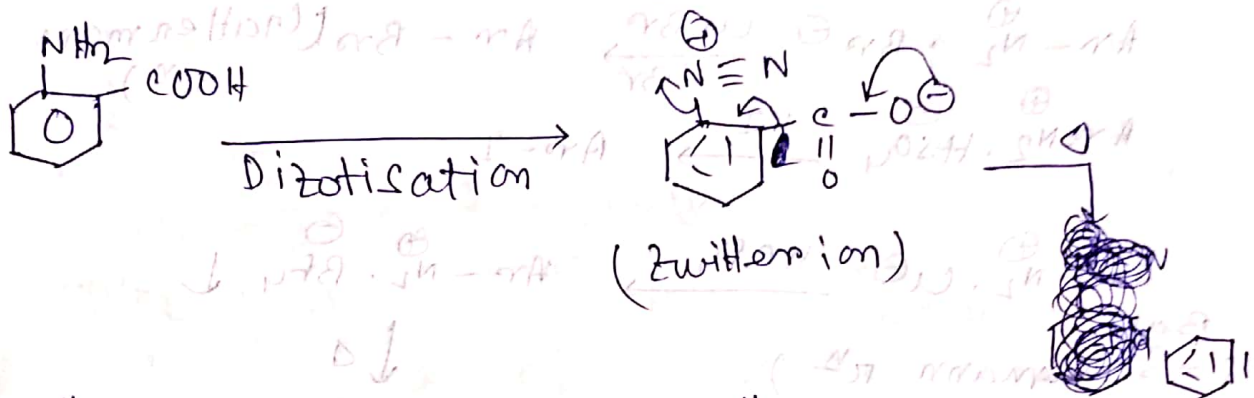 NH2
COOH
Dizotisation
⊕
N ≡ N
C - O ⊖
||
O
Δ
(Zwitter ion)